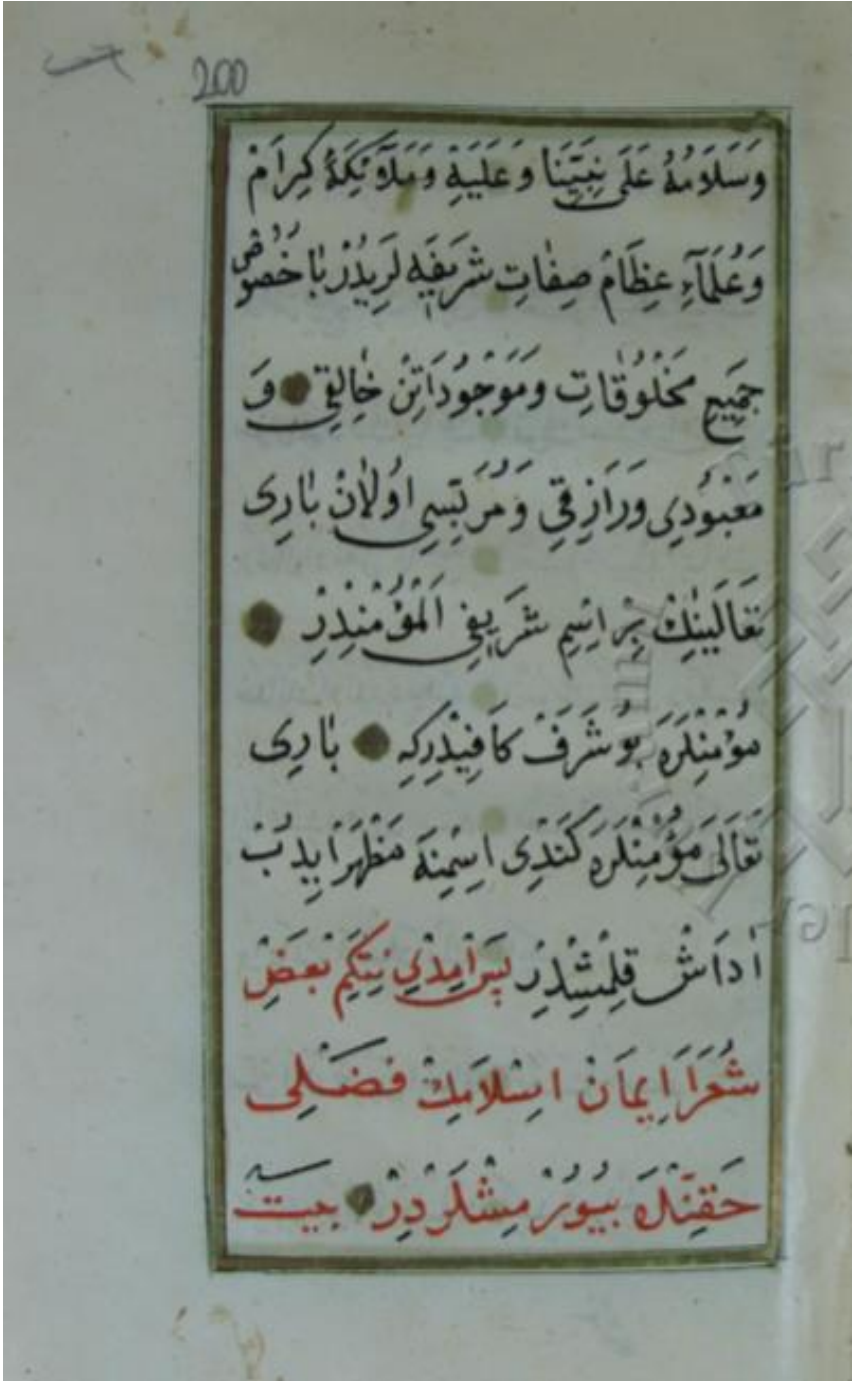 200
وَسَلَامُهُ عَلَى نَبِيِّنَا وَعَلَيْهِ وَمَلَآئِكَۀِ كِرَامْ
وَعُلَمَآءِ عِظَامْ صِفَاتِ شَرِيفَه لَرِيدُرْ بَاخُصُوصْ
جَمِيعِ مَخْلُوقَاتِ وَمَوْجُودَاتِنْ خَالِقِى وَ
مَعْبُودِى وَرَازِقِى وَمُرَبِّيسِى اُولَانْ بَارِى
تَعَالَينِكْ بِرْ اِسِمِ شَرِيفِى اَلْمُؤْمِنْدِرْ
مُؤْمِنْلَرَه بُو شَرَفْ كَافِيدِرْكِه بَارِى
تَعَالَى مُؤْمِنْلَرَه كَنْدِى اسِمْنَه مَظْهَرْ اِيدُبْ
اَدَاشْ قِلْمِشْدِرْ پَسْ اِمْدِى نِتَكِمْ بَعْضِ
شُعَرَا اِيمَانْ اسْلَامِكْ فَضْلِى
حَقِنْدَه بُيُورْمِشْلَرْدِرْ بيت